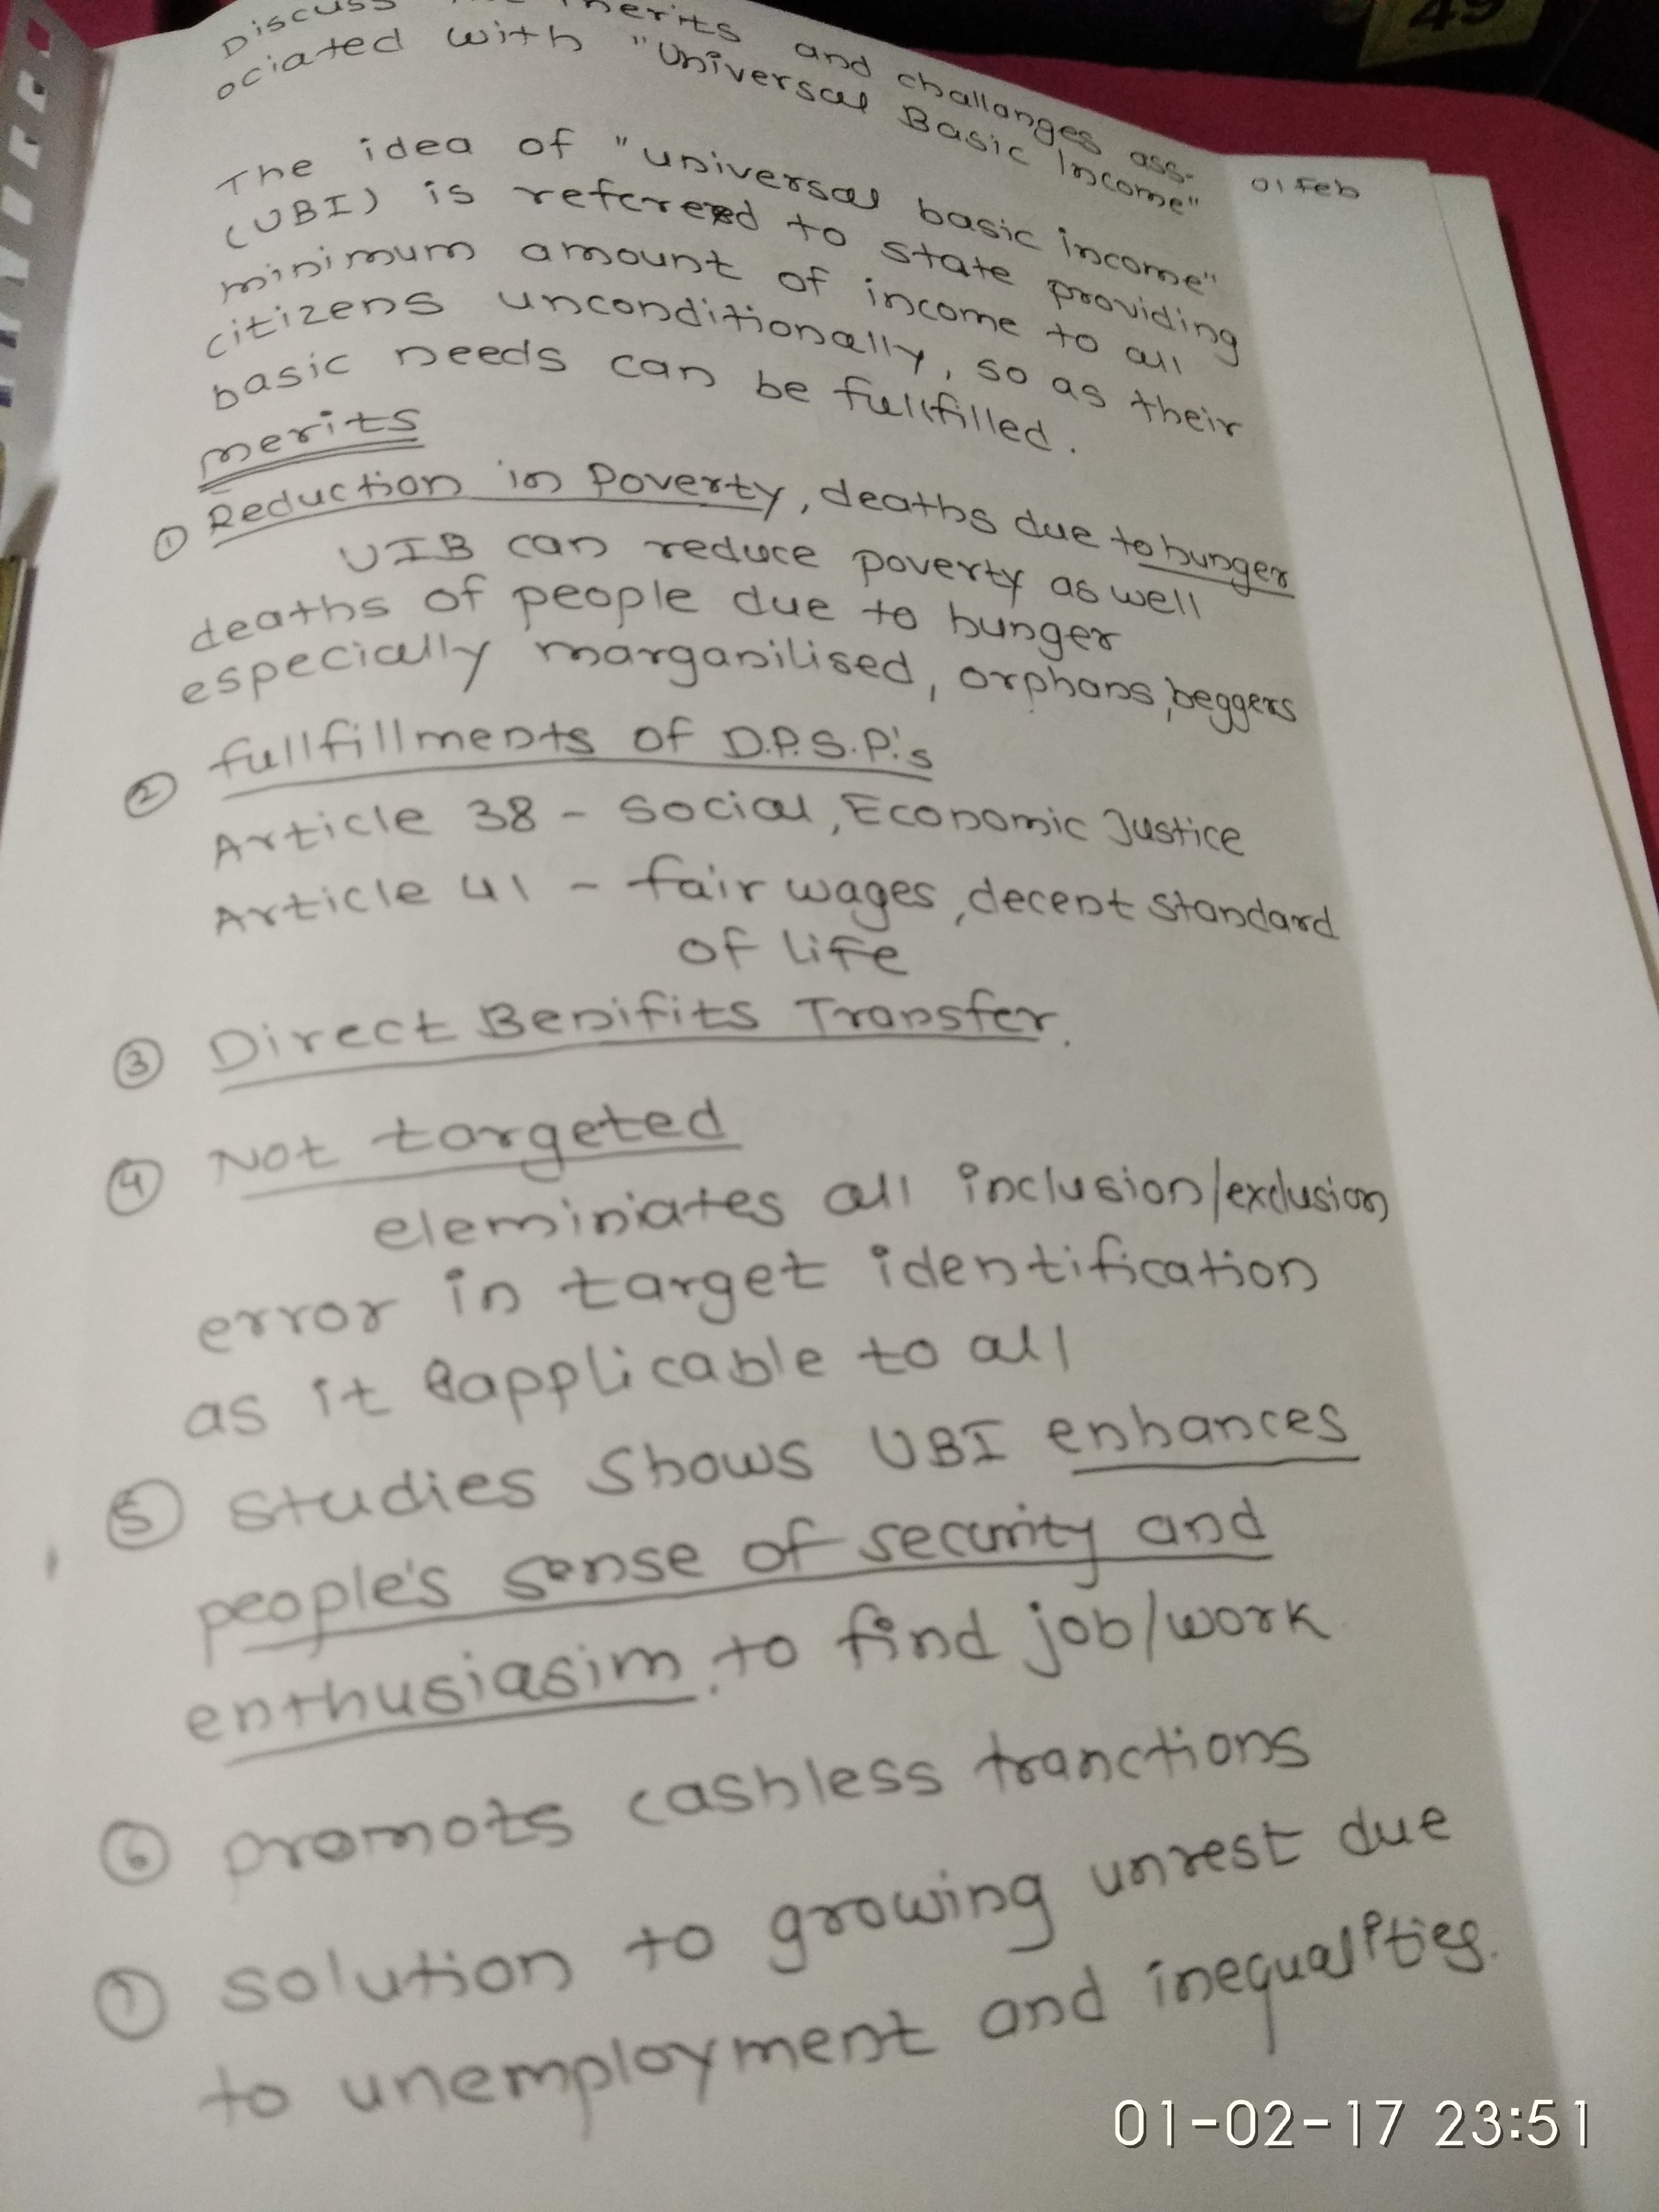 Discuss merits and challanges ass-
ociated with "Universal Basic Income"
01 Feb
The idea of "universal basic income"
(UBI) is refered to state providing
minimum amount of income to all
citizens unconditionally, so as their
basic needs can be fullfilled.
merits
① Reduction in Poverty, deaths due to hunger
UIB can reduce poverty as well
deaths of people due to hunger
especially marganilised, orphans, beggers
② fullfillments of D.P.S.P.'s
Article 38 - Social, Economic Justice
Article 41 - fair wages, decent standard
of life
③ Direct Benifits Transfer.
④ Not targeted
eleminiates all inclusion/exclusion
error in target identification
as it applicable to all
⑤ studies shows UBI enhances
people's sense of security and
enthusiasim to find job/work
⑥ promots cashless tranctions
⑦ solution to growing unrest due
to unemployment and inequalities.
49
01-02-17 23:51